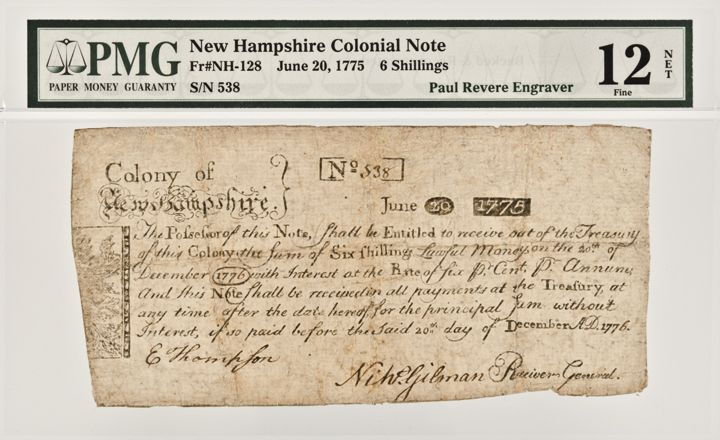 PMG
PAPER MONEY GUARANTY
New Hampshire Colonial Note
Fr#NH-128 June 20, 1775 6 Shillings
S/N 538
Paul Revere Engraver
12
NET
Fine
Colony of
New Hampshire.
No. 538
June 20 1775
The Possessor of this Note, shall be Entitled to receive out of the Treasury
of this Colony, the sum of Six shillings Lawful Money, on the 20th of
December 1776 with Interest at the Rate of six Pr. Cent, Pr. Annum,
And this Note shall be received in all payments at the Treasury, at
any time after the date hereof, for the principal sum without
Interest, if so paid before the said 20th day of December A.D. 1776.
E Thompson
Nichs. Gilman Receiver General.